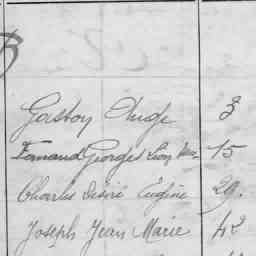 B
Gaston Ange 3
Fernand Georges Léon 15
Charles Désiré Eugène 29.
Joseph Jean Marie 42